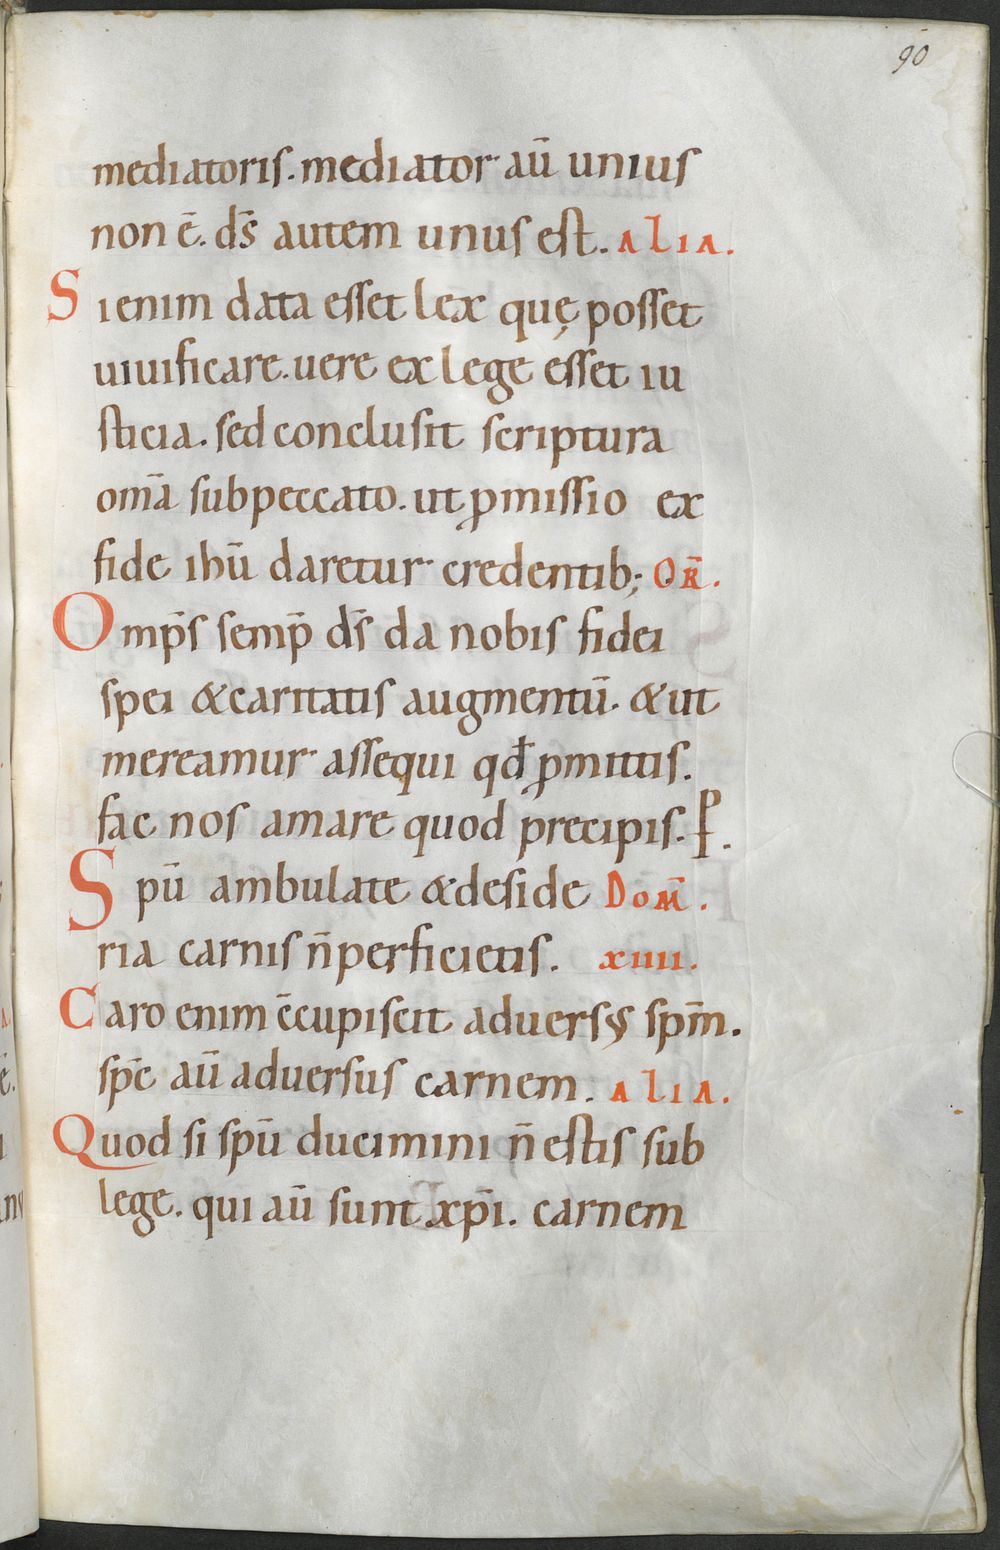 90
mediatoris. mediator aū unius
non ē. ds̄ autem unus est. alia.
Si enim data esset lex quę posset
uiuificare. uere ex lege esset iu
sticia. sed conclusit scriptura
om̄a sub peccato. ut ꝓmissio ex
fide ihū daretur credentib; OR̄.
Omp̄s semp̄ ds̄ da nobis fidei
spei & caritatis augmentū. & ut
mereamur assequi qđ ꝓmittis.
fac nos amare quod precipis. P.
Spū ambulate & deside Dom̄.
ria carnis n̄ perficietis. xiiii.
Caro enim c̄cupiscit aduersꝰ spm̄.
spc̄ aū aduersus carnem. alia.
Quod si spū ducimini n̄ estis sub
lege. qui aū sunt xpi̅. carnem